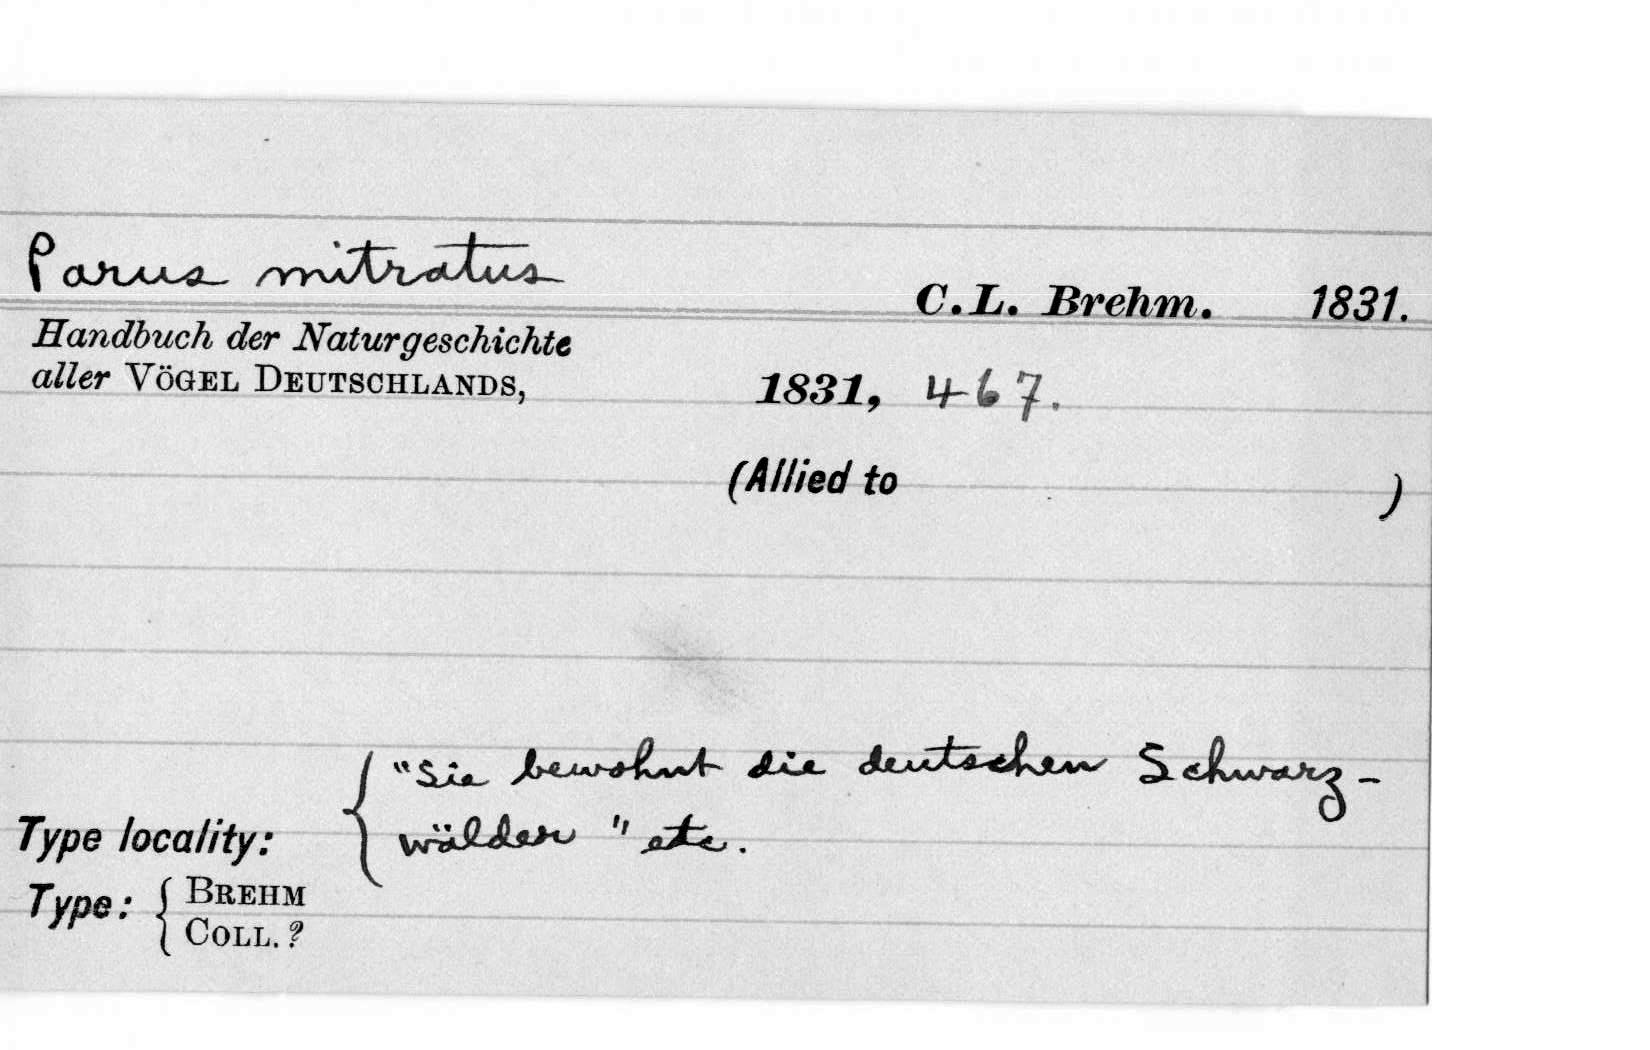 Parus mitratus
C. L. Brehm. 1831.
Handbuch der Naturgeschichte
aller VÖGEL DEUTSCHLANDS, 1831, 467.
(Allied to )
"Sie bewohnt die deutschen Schwarz-
Type locality: wälder" etc.
Type: BREHM
COLL.?